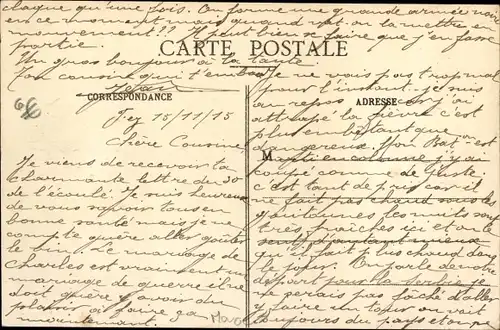 chaque qu'une fois. On forme une grande armée noire
en ce moment mais quand va-t-on la mettre
mouvement?? Il peut bien se faire que j'en fasse
partie.
Un gros bonjour à la tante
Ton cousin qui t'embrasse
Jean
CARTE POSTALE
CORRESPONDANCE
ADRESSE
Fez 15/11/15
Chère Cousine,
Je viens de recevoir ta
charmante lettre du 30
de l'écoulé. Je suis heureux
de vous savoir tous en
bonne santé mais je ne
compte guère aller goûter
le vin. Le mariage de
Charles est vraiment un
mariage de guerre il ne
doit guère y avoir du
plaisir à faire ça
maintenant.
Je ne vais pas trop mal
pour l'instant je suis
au repos car j'ai
attrapé la fièvre c'est
plus embêtant que
dangereux. Mon Bat. est
M
coupé comme de juste
c'est tant de pris car il
ne fait pas chaud sous les
guitounes les nuits sont
très fraîches ici et on le
sent d'autant mieux
qu'il fait plus chaud dans
le jour. On parle de notre
départ pour la
ne serais pas fâché d'aller
faire un tour on voit
toujours du pays et on ne
Maroc